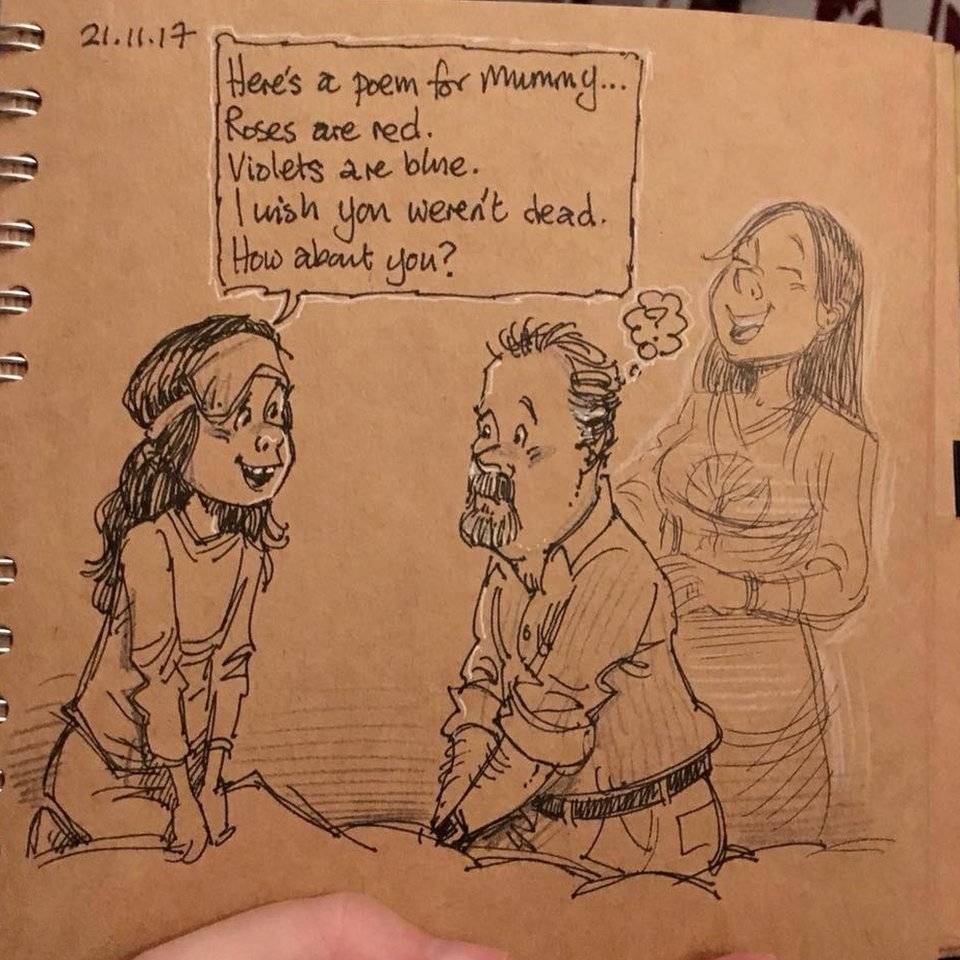 21.11.17
Here's a poem for Mummy...
Roses are red.
Violets are blue.
I wish you weren't dead.
How about you?
?